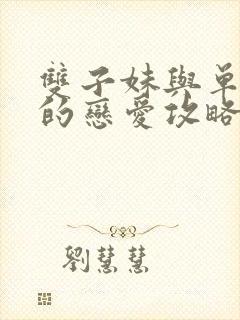 雙子妹與單
的戀愛攻略
劉慧慧